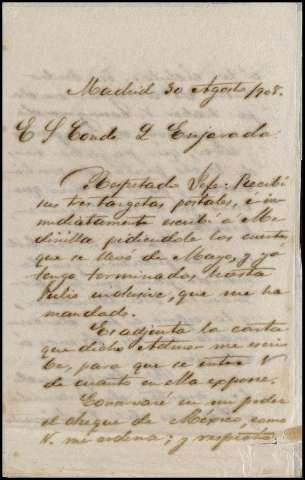 Madrid 30 Agosto/908.
E S Conde D Enjarada
Respetado Jefe: Recibí
sus tres targetas postales, é in-
mediatamente escribí á Me-
dinilla pidiendole las cuentas
que se llevó de Mayo, y ya
tengo terminadas hasta
Julio inclusive, que me ha
mandado.
Es adjunta la carta
que dicho Admor me escri-
be, para que se entere V
de cuanto en ella expone.
Conservaré en mi poder
el cheque de México, como
V. me ordena; y respecto